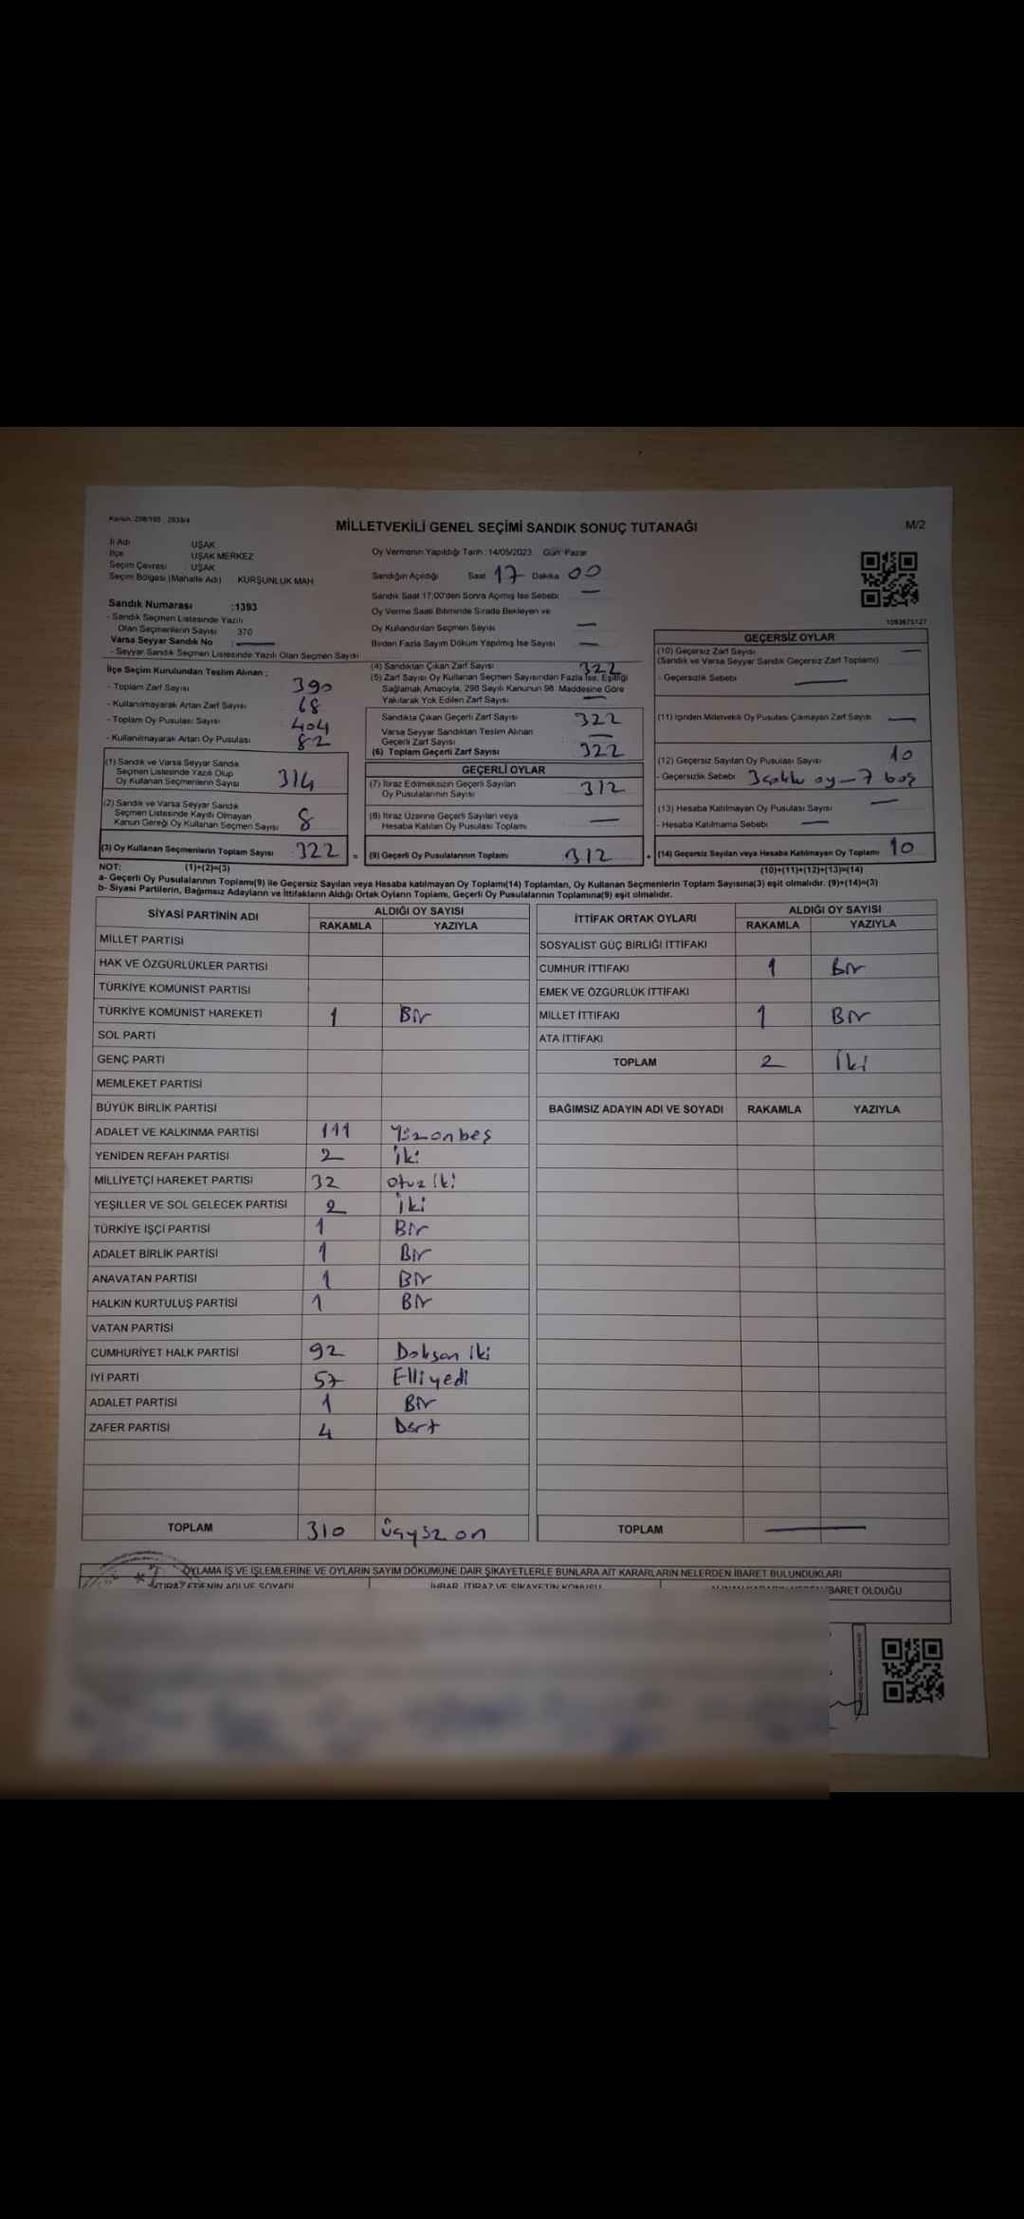 Kanun: 298/105 2839/4
MİLLETVEKİLİ GENEL SEÇİMİ SANDIK SONUÇ TUTANAĞI
M/2
İl Adı UŞAK
İlçe UŞAK MERKEZ
Seçim Çevresi UŞAK
Seçim Bölgesi (Mahalle Adı) KURŞUNLUK MAH
Sandık Numarası :1393
- Sandık Seçmen Listesinde Yazılı
Olan Seçmenlerin Sayısı 370
Varsa Seyyar Sandık No : —
- Seyyar Sandık Seçmen Listesinde Yazılı Olan Seçmen Sayısı
Oy Vermenin Yapıldığı Tarih : 14/05/2023 Gün: Pazar
Sandığın Açıldığı Saat 17 Dakika 00
Sandık Saat 17:00'den Sonra Açılmış İse Sebebi —
Oy Verme Saati Bitiminde Sırada Bekleyen ve
Oy Kullandırılan Seçmen Sayısı —
Birden Fazla Sayım Döküm Yapılmış İse Sayısı —
1093675127
İlçe Seçim Kurulundan Teslim Alınan :
- Toplam Zarf Sayısı 390
- Kullanılmayarak Artan Zarf Sayısı 68
- Toplam Oy Pusulası Sayısı 404
- Kullanılmayarak Artan Oy Pusulası 82
(1) Sandık ve Varsa Seyyar Sandık
Seçmen Listesinde Yazılı Olup
Oy Kullanan Seçmenlerin Sayısı 314
(2) Sandık ve Varsa Seyyar Sandık
Seçmen Listesinde Kayıtlı Olmayan
Kanun Gereği Oy Kullanan Seçmen Sayısı 8
(3) Oy Kullanan Seçmenlerin Toplam Sayısı 322
(4) Sandıktan Çıkan Zarf Sayısı 322
(5) Zarf Sayısı Oy Kullanan Seçmen Sayısından Fazla İse, Eşitliği
Sağlamak Amacıyla, 298 Sayılı Kanunun 98. Maddesine Göre
Yakılarak Yok Edilen Zarf Sayısı —
Sandıkta Çıkan Geçerli Zarf Sayısı 322
Varsa Seyyar Sandıktan Teslim Alınan
Geçerli Zarf Sayısı —
(6) Toplam Geçerli Zarf Sayısı 322
GEÇERLİ OYLAR
(7) İtiraz Edilmeksizin Geçerli Sayılan
Oy Pusulalarının Sayısı 312
(8) İtiraz Üzerine Geçerli Sayılan veya
Hesaba Katılan Oy Pusulası Toplamı —
= (9) Geçerli Oy Pusulalarının Toplamı 312
GEÇERSİZ OYLAR
(10) Geçersiz Zarf Sayısı —
(Sandık ve Varsa Seyyar Sandık Geçersiz Zarf Toplamı)
- Geçersizlik Sebebi —
(11) İçinden Milletvekili Oy Pusulası Çıkmayan Zarf Sayısı —
(12) Geçersiz Sayılan Oy Pusulası Sayısı 10
- Geçersizlik Sebebi 3 çoklu oy - 7 boş
(13) Hesaba Katılmayan Oy Pusulası Sayısı —
- Hesaba Katılmama Sebebi —
+ (14) Geçersiz Sayılan veya Hesaba Katılmayan Oy Toplamı 10
NOT: (1)+(2)=(3)
(10)+(11)+(12)+(13)=(14)
a- Geçerli Oy Pusulalarının Toplamı(9) ile Geçersiz Sayılan veya Hesaba katılmayan Oy Toplamı(14) Toplamları, Oy Kullanan Seçmenlerin Toplam Sayısına(3) eşit olmalıdır. (9)+(14)=(3)
b- Siyasi Partilerin, Bağımsız Adayların ve İttifakların Aldığı Ortak Oyların Toplamı, Geçerli Oy Pusulalarının Toplamına(9) eşit olmalıdır.
SİYASİ PARTİNİN ADI ALDIĞI OY SAYISI
RAKAMLA YAZIYLA
MİLLET PARTİSİ
HAK VE ÖZGÜRLÜKLER PARTİSİ
TÜRKİYE KOMÜNİST PARTİSİ
TÜRKİYE KOMÜNİST HAREKETİ 1 Bir
SOL PARTİ
GENÇ PARTİ
MEMLEKET PARTİSİ
BÜYÜK BİRLİK PARTİSİ
ADALET VE KALKINMA PARTİSİ 111 Yüzonbeş
YENİDEN REFAH PARTİSİ 2 iki
MİLLİYETÇİ HAREKET PARTİSİ 32 otuz iki
YEŞİLLER VE SOL GELECEK PARTİSİ 2 iki
TÜRKİYE İŞÇİ PARTİSİ 1 Bir
ADALET BİRLİK PARTİSİ 1 Bir
ANAVATAN PARTİSİ 1 Bir
HALKIN KURTULUŞ PARTİSİ 1 Bir
VATAN PARTİSİ
CUMHURİYET HALK PARTİSİ 92 Doksan iki
İYİ PARTİ 57 Elliyedi
ADALET PARTİSİ 1 Bir
ZAFER PARTİSİ 4 Dört
TOPLAM 310 üçyüz on
İTTİFAK ORTAK OYLARI ALDIĞI OY SAYISI
RAKAMLA YAZIYLA
SOSYALİST GÜÇ BİRLİĞİ İTTİFAKI
CUMHUR İTTİFAKI 1 Bir
EMEK VE ÖZGÜRLÜK İTTİFAKI
MİLLET İTTİFAKI 1 Bir
ATA İTTİFAKI
TOPLAM 2 İki
BAĞIMSIZ ADAYIN ADI VE SOYADI RAKAMLA YAZIYLA
TOPLAM —
OYLAMA İŞ VE İŞLEMLERİNE VE OYLARIN SAYIM DÖKÜMÜNE DAİR ŞİKAYETLERLE BUNLARA AİT KARARLARIN NELERDEN İBARET BULUNDUKLARI
İTİRAZ EDENİN ADI VE SOYADI İHBAR, İTİRAZ VE ŞİKAYETİN KONUSU İBARET OLDUĞU